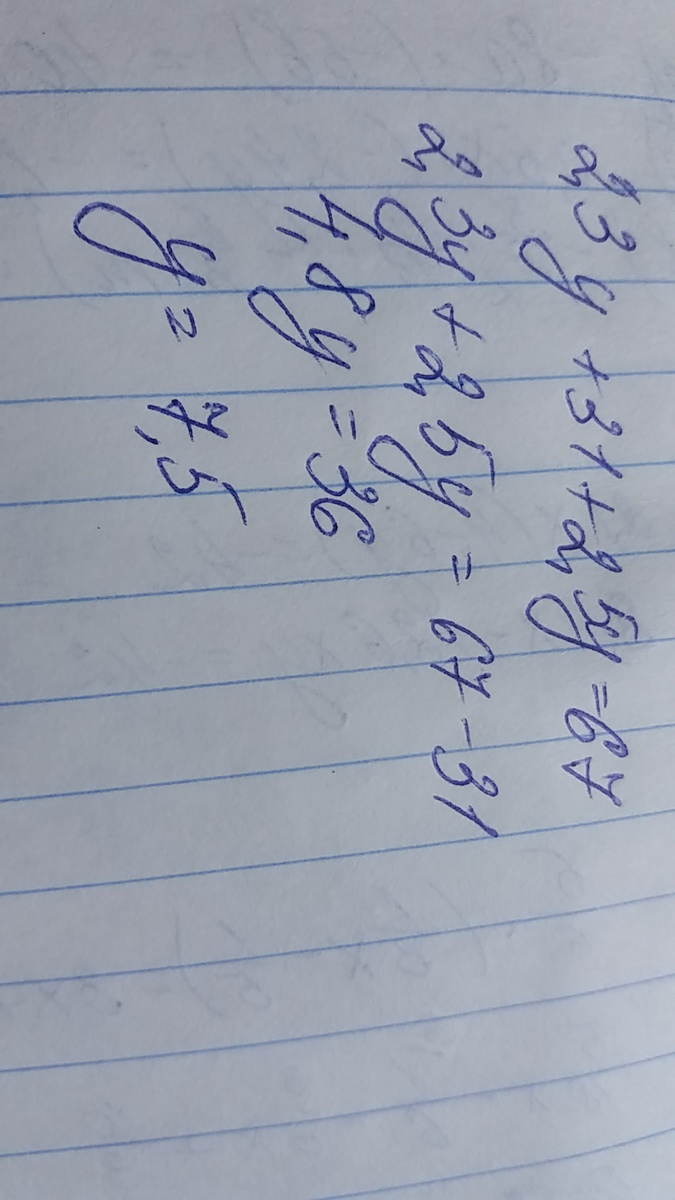 2,3y+31+2,5y=67
2,3y+2,5y=67-31
4,8y=36
y=7,5